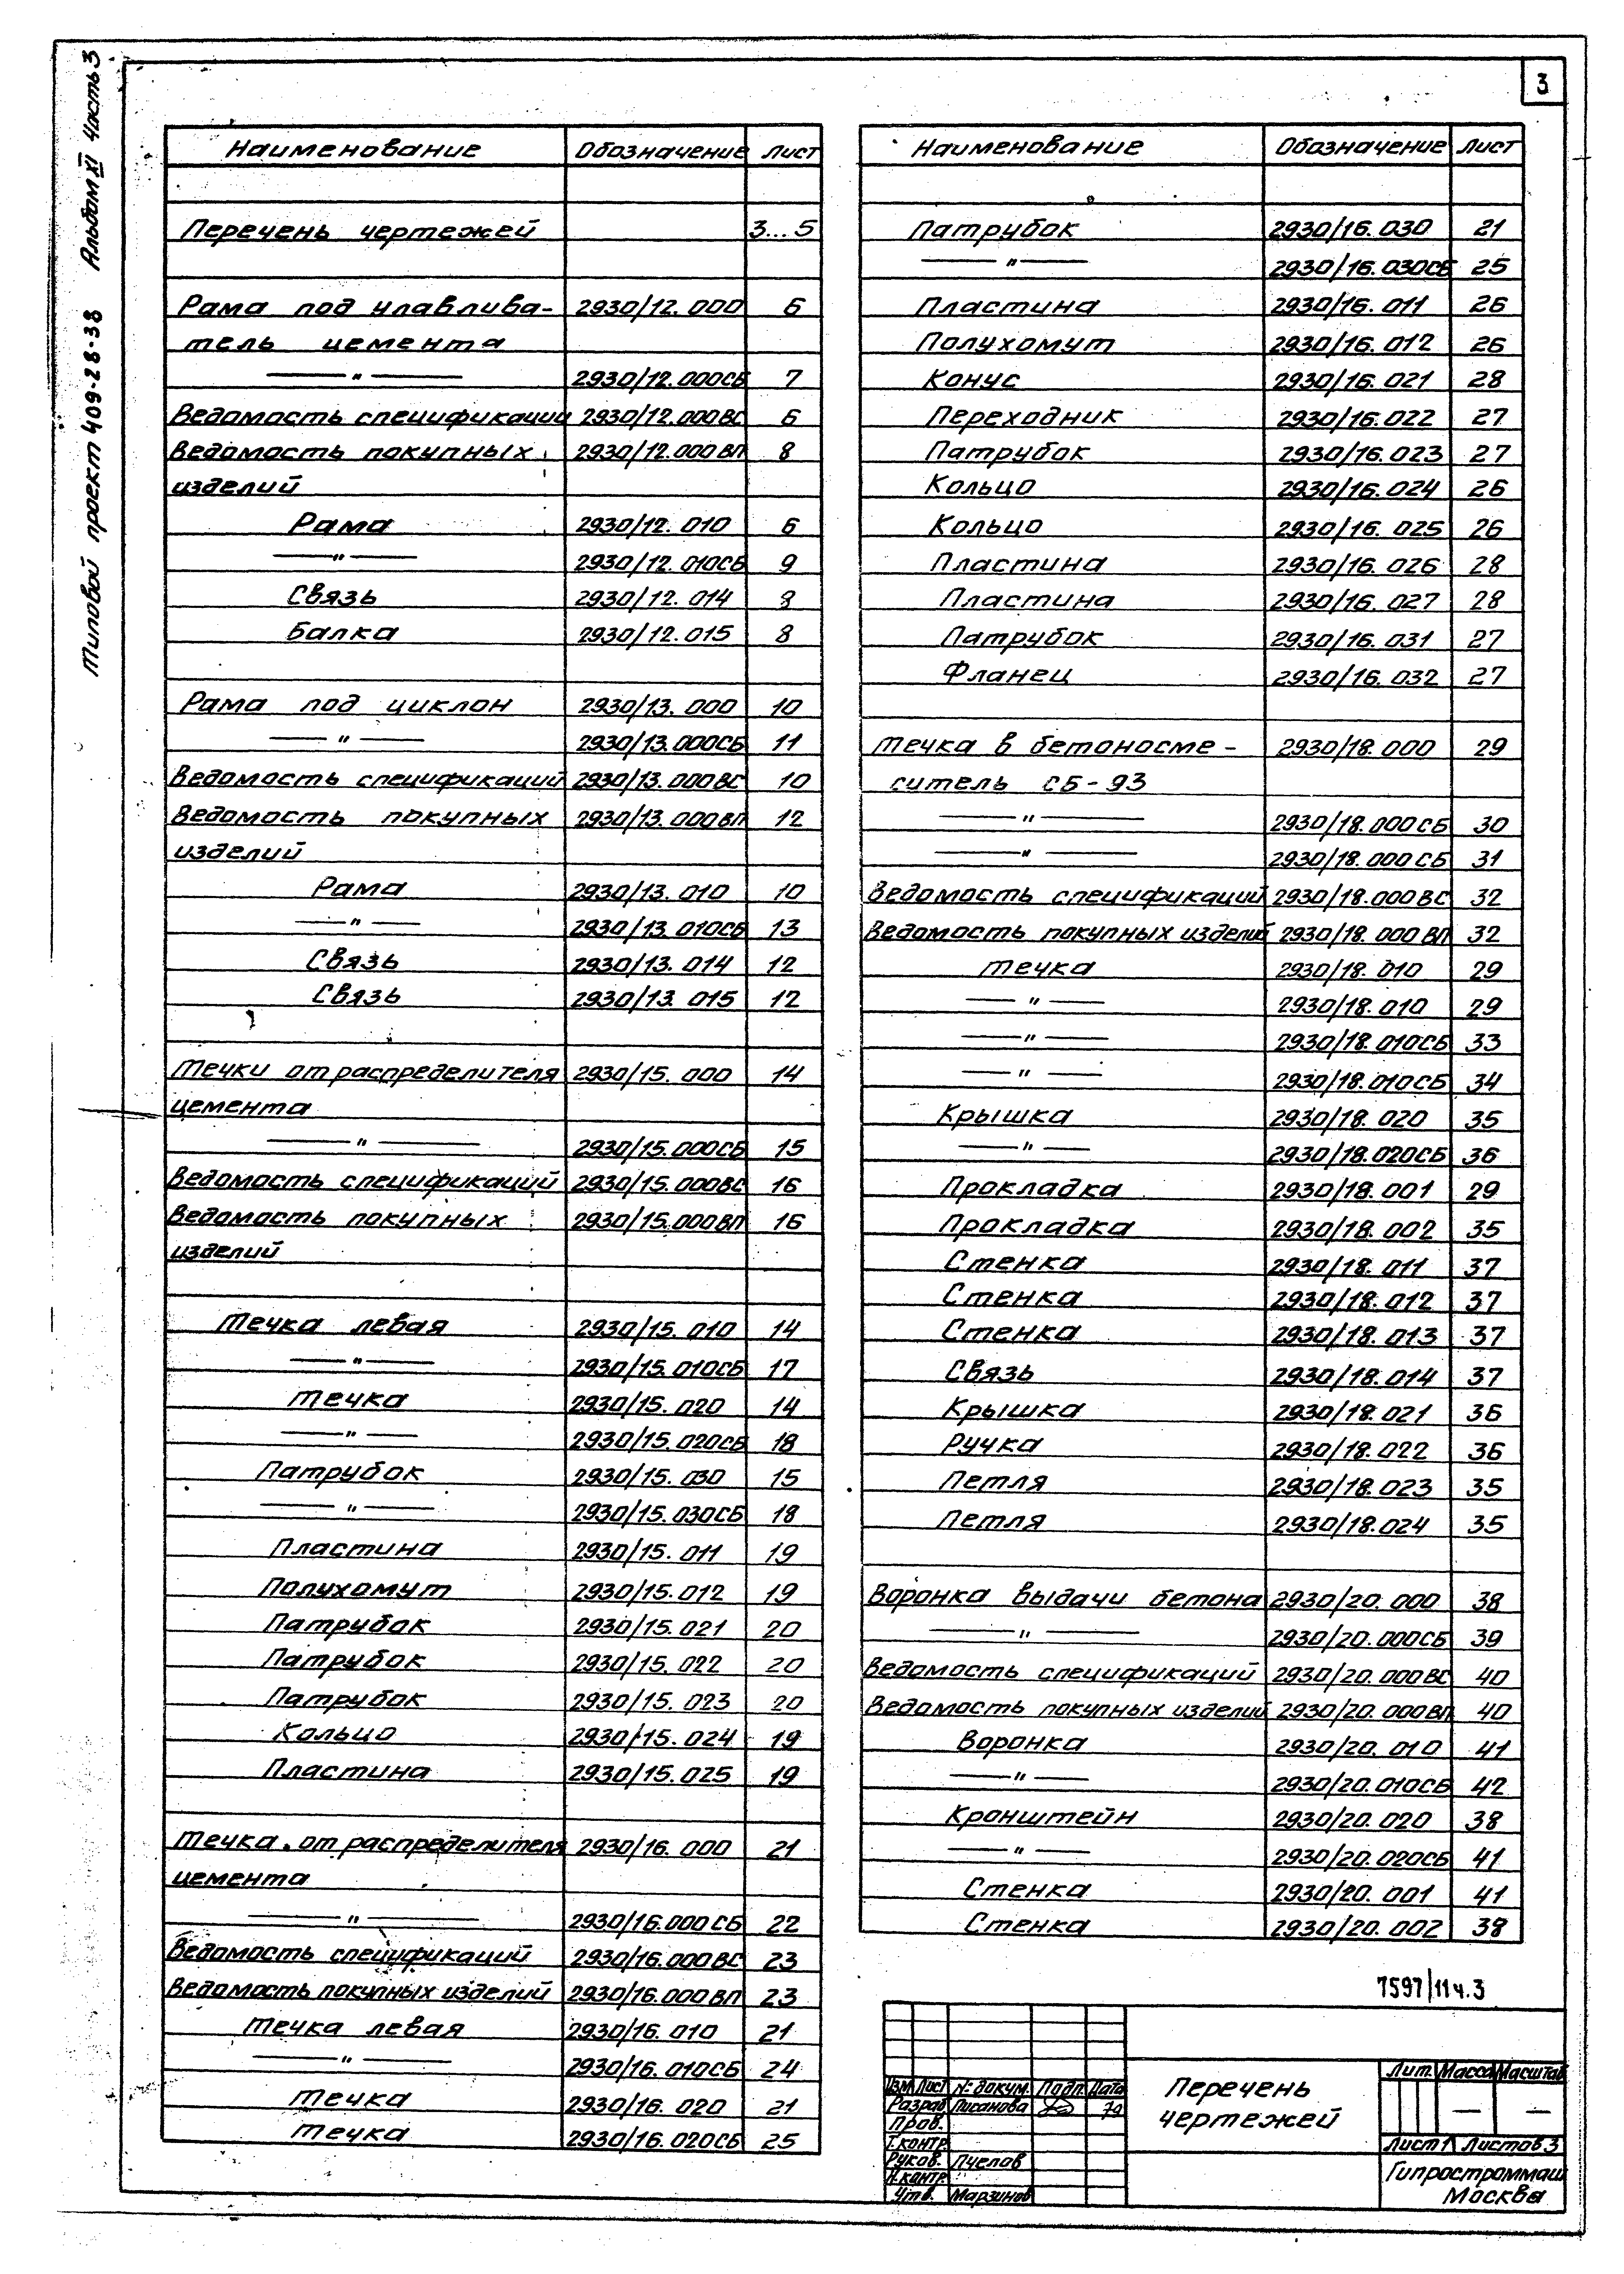 3
Типовой проект 409-28-38 Альбом XI Часть 3
Наименование Обозначение Лист
Перечень чертежей 3...5
Рама под улавлива- 2930/12.000 6
тель цемента
—"— 2930/12.000СБ 7
Ведомость спецификации 2930/12.000ВС 6
Ведомость покупных 2930/12.000ВП 8
изделий
Рама 2930/12.010 6
—"— 2930/12.010СБ 9
Связь 2930/12.014 8
Балка 2930/12.015 8
Рама под циклон 2930/13.000 10
—"— 2930/13.000СБ 11
Ведомость спецификаций 2930/13.000ВС 10
Ведомость покупных 2930/13.000ВП 12
изделий
Рама 2930/13.010 10
—"— 2930/13.010СБ 13
Связь 2930/13.014 12
Связь 2930/13.015 12
Течки от распределителя 2930/15.000 14
цемента
—"— 2930/15.000СБ 15
Ведомость спецификаций 2930/15.000ВС 16
Ведомость покупных 2930/15.000ВП 16
изделий
Течка левая 2930/15.010 14
—"— 2930/15.010СБ 17
Течка 2930/15.020 14
—"— 2930/15.020СБ 18
Патрубок 2930/15.030 15
—"— 2930/15.030СБ 18
Пластина 2930/15.011 19
Полухомут 2930/15.012 19
Патрубок 2930/15.021 20
Патрубок 2930/15.022 20
Патрубок 2930/15.023 20
Кольцо 2930/15.024 19
Пластина 2930/15.025 19
Течка от распределителя 2930/16.000 21
цемента
—"— 2930/16.000СБ 22
Ведомость спецификаций 2930/16.000ВС 23
Ведомость покупных изделий 2930/16.000ВП 23
Течка левая 2930/16.010 21
—"— 2930/16.010СБ 24
Течка 2930/16.020 21
Течка 2930/16.020СБ 25
Наименование Обозначение Лист
Патрубок 2930/16.030 21
—"— 2930/16.030СБ 25
Пластина 2930/16.011 26
Полухомут 2930/16.012 26
Конус 2930/16.021 28
Переходник 2930/16.022 27
Патрубок 2930/16.023 27
Кольцо 2930/16.024 26
Кольцо 2930/16.025 26
Пластина 2930/16.026 28
Пластина 2930/16.027 28
Патрубок 2930/16.031 27
Фланец 2930/16.032 27
Течка в бетоносме- 2930/18.000 29
ситель СБ-93
—"— 2930/18.000СБ 30
—"— 2930/18.000СБ 31
Ведомость спецификаций 2930/18.000ВС 32
Ведомость покупных изделий 2930/18.000ВП 32
Течка 2930/18.010 29
—"— 2930/18.010 29
—"— 2930/18.010СБ 33
—"— 2930/18.010СБ 34
Крышка 2930/18.020 35
—"— 2930/18.020СБ 36
Прокладка 2930/18.001 29
Прокладка 2930/18.002 35
Стенка 2930/18.011 37
Стенка 2930/18.012 37
Стенка 2930/18.013 37
Связь 2930/18.014 37
Крышка 2930/18.021 36
Ручка 2930/18.022 36
Петля 2930/18.023 35
Петля 2930/18.024 35
Воронка выдачи бетона 2930/20.000 38
—"— 2930/20.000СБ 39
Ведомость спецификаций 2930/20.000ВС 40
Ведомость покупных изделий 2930/20.000ВП 40
Воронка 2930/20.010 41
—"— 2930/20.010СБ 42
Кронштейн 2930/20.020 38
—"— 2930/20.020СБ 41
Стенка 2930/20.001 41
Стенка 2930/20.002 38
7597/11 ч.3
Изм Лист № докум. Подп. Дата
Разраб Писанова 79
Пров.
Т.контр
Руков. Пчелов
Н.контр
Утв. Марзинов
Перечень
чертежей
Лит. Масса Масштаб
— —
Лист 1 Листов 3
Гипростроммаш
Москва